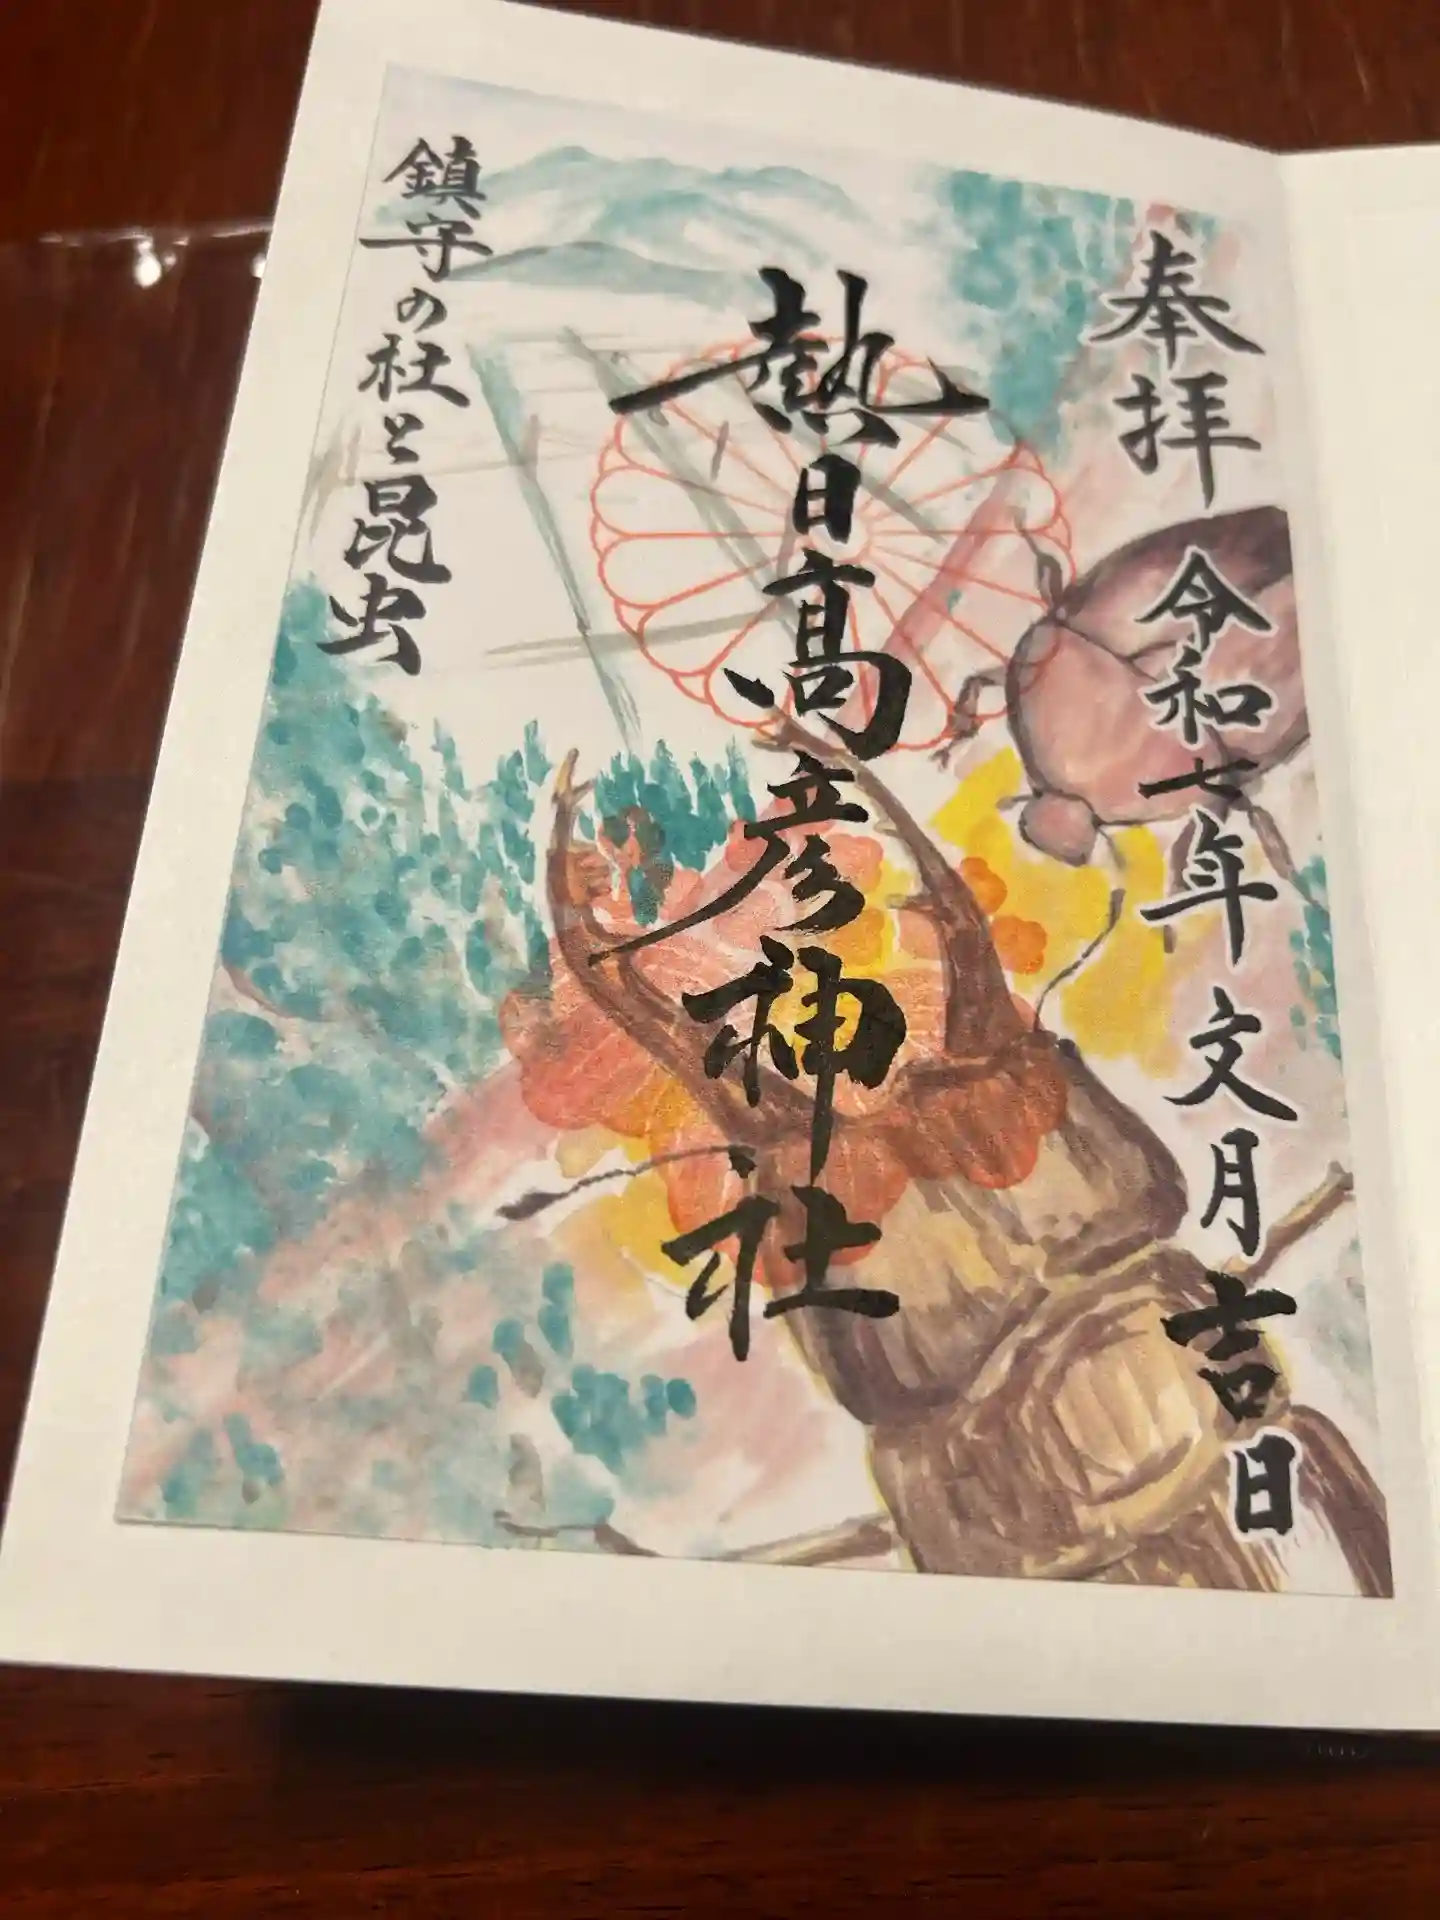 奉拝 令和七年文月吉日
熱日高彦神社
鎮守の杜と昆虫